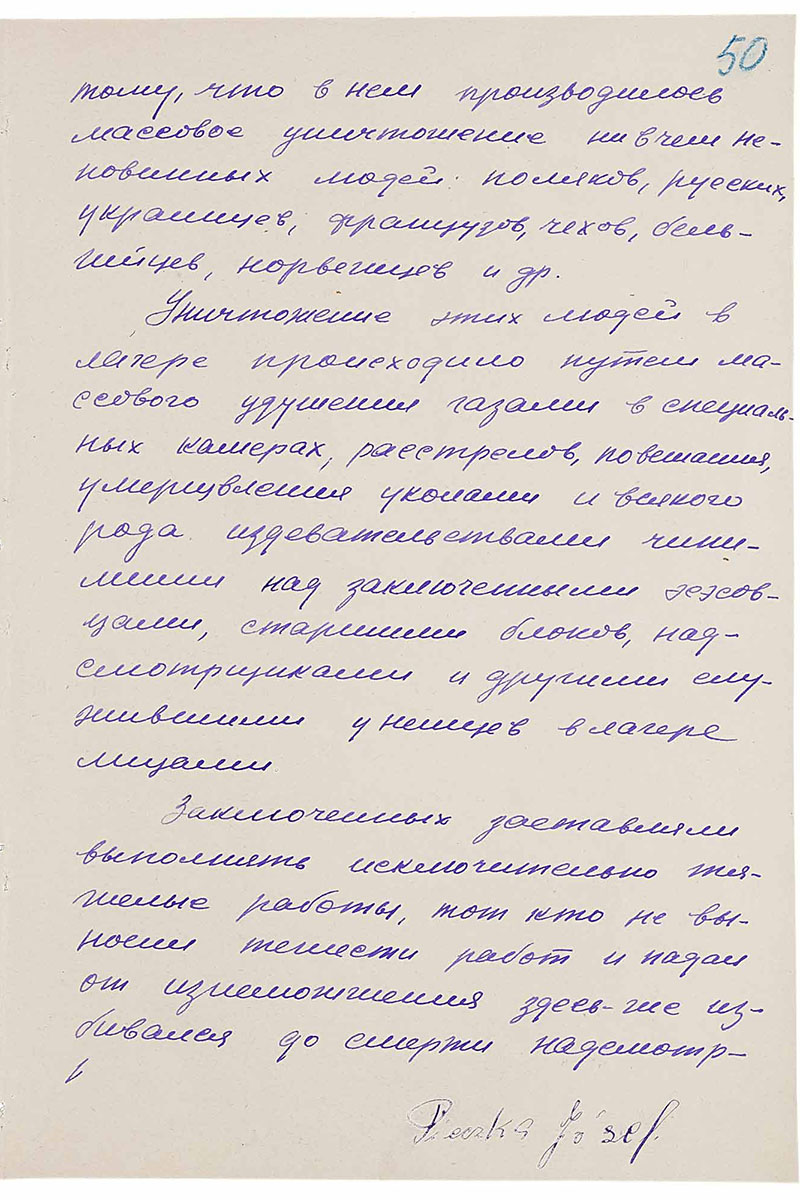 50
тому, что в нем производилось
массовое уничтожение ни в чем не-
повинных людей: поляков, русских,
украинцев, французов, чехов, бель-
гийцев, норвежцев и др.
Уничтожение этих людей в
лагере происходило путем ма-
ссового удушения газами в специаль-
ных камерах, расстрелов, повешания,
умерщвления уколами и всякого
рода издевательствами чини-
мыми над заключенными эсэсов-
цами, старшими блоков, над-
смотрщиками и другими слу-
жившими у немцев в лагере
лицами.
Заключенных заставляли
выполнять исключительно тя-
желые работы, тот кто не вы-
носил тяжести работ и падал
от изнеможжения здесь-же из-
бивался до смерти надсмотр-
Pieczka Józef.